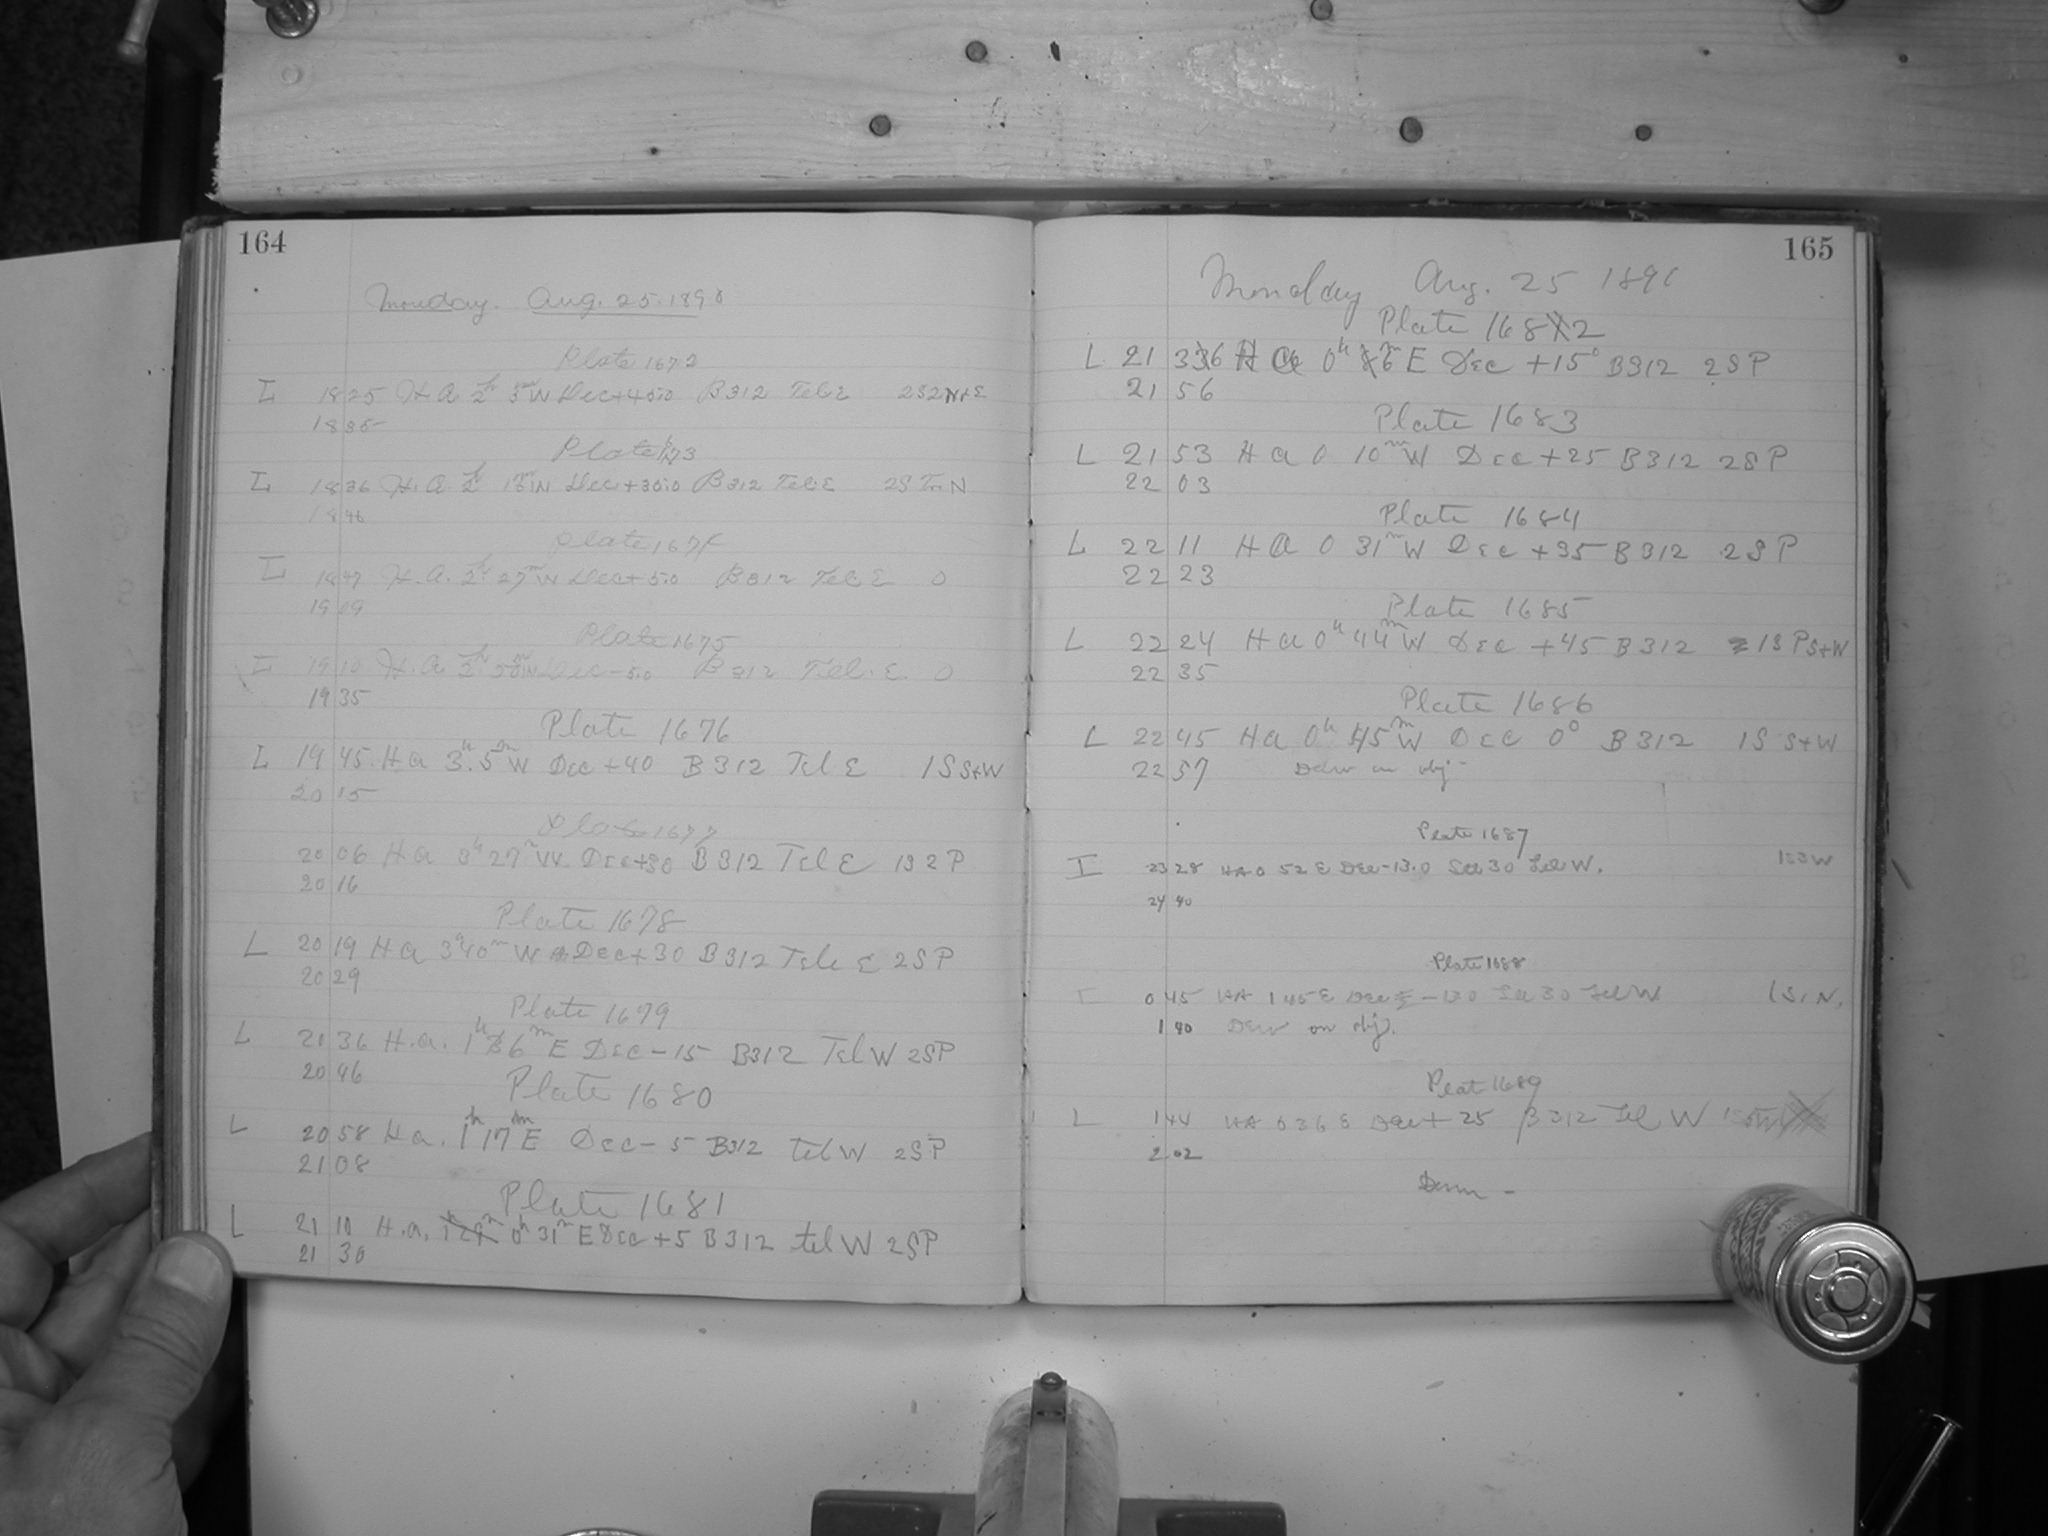 164
Monday. Aug. 25. 1890
Plate 1672
I 18 25 H A 2h 3m W Dec +45.0 B312 Tel E
18 35
Plate 1673
I 18 36 H. A. 2h W Dec +30.0 B312 Tel. E
18 46
Plate 1674
I 18 47 H. A. 2h 27m W Dec + 5.0 B312 Tel E 0
19 09
Plate 1675
I 19 10 H. A 2h 50m W Dec - 5.0 B312 Tel. E 0
19 35
Plate 1676
L 19 45 H a 3h 5m W Dec +40 B312 Tel E 1S S+W
20 15
Plate 1677
20 06 H a 3h 27m W Dec +30 B312 Tel E 1S 2 P
20 16
Plate 1678
L 20 19 H a 3h 40m W Dec +30 B312 Tele E 2SP
20 29
Plate 1679
L 21 36 H. a. 1h 6m E Dec -15 B312 Tel W 2SP
20 46
Plate 1680
L 20 58 H a. 1h 17m E Dec - 5 B312 tel W 2SP
21 08
Plate 1681
L 21 10 H. a. 0h 31m E Dec +5 B312 tel W 2SP
21 30
165
Monday Aug. 25 1890
Plate 1682
L 21 36 H a 0h 6m E Dec +15° B312 2SP
21 56
Plate 1683
L 21 53 H a 0 10m W Dec +25 B312 2SP
22 03
Plate 1684
L 22 11 H a 0 31m W Dec +35 B312 2SP
22 23
Plate 1685
L 22 24 H a 0h 44m W Dec +45 B312 1S P S+W
22 35
Plate 1686
L 22 45 H a 0h 45m W Dec 0° B312 1S S+W
22 57 Dew on obj -
Plate 1687
I 23 28 HA 0 52 E Dec -13.0 Sct 30 Tel W.
24 40
Plate 1688
I 0 45 HA 1 45 E Dec -13.0 Sct 30 Tel W 1S, N,
1 40 Dew on obj.
Plate 1689
L 1 44 HA 0 36 E Dec + 25 B 312 Tel W
2 02
Dawn -